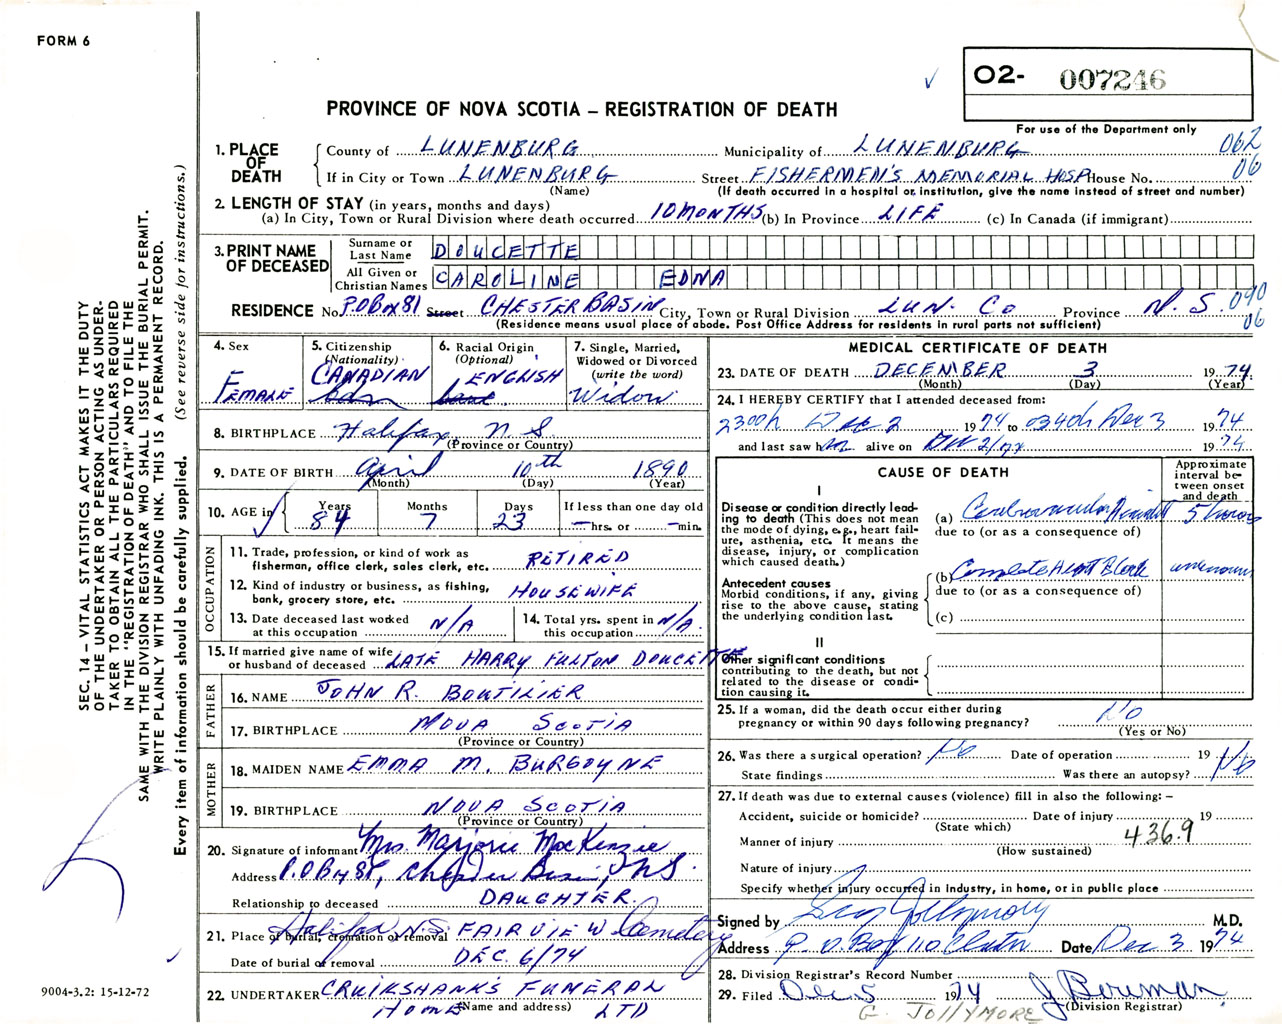 FORM 6
O2- 007246
PROVINCE OF NOVA SCOTIA – REGISTRATION OF DEATH
For use of the Department only
1. PLACE OF DEATH
County of LUNENBURG Municipality of LUNENBURG 062
If in City or Town LUNENBURG Street FISHERMEN'S MEMORIAL HOSP. House No. 06
(Name) (If death occurred in a hospital or institution, give the name instead of street and number)
2. LENGTH OF STAY (in years, months and days)
(a) In City, Town or Rural Division where death occurred 10 MONTHS (b) In Province LIFE (c) In Canada (if immigrant)
3. PRINT NAME OF DECEASED
Surname or Last Name DOUCETTE
All Given or Christian Names CAROLINE EDNA
RESIDENCE No. P.O Box 81 Street CHESTER BASIN City, Town or Rural Division LUN. Co Province N.S. 090
06
(Residence means usual place of abode. Post Office Address for residents in rural parts not sufficient)
4. Sex
FEMALE
5. Citizenship (Nationality)
CANADIAN
6. Racial Origin (Optional)
ENGLISH
7. Single, Married, Widowed or Divorced (write the word)
Widow
8. BIRTHPLACE Halifax, N.S.
(Province or Country)
9. DATE OF BIRTH April 10th 1890
(Month) (Day) (Year)
10. AGE in Years Months Days If less than one day old
84 7 23 – hrs. or – min.
OCCUPATION
11. Trade, profession, or kind of work as fisherman, office clerk, sales clerk, etc. RETIRED
12. Kind of industry or business, as fishing, bank, grocery store, etc. HOUSEWIFE
13. Date deceased last worked at this occupation N/A
14. Total yrs. spent in this occupation N/A.
15. If married give name of wife or husband of deceased LATE HARRY FULTON DOUCETTE
FATHER
16. NAME JOHN R. BOUTILIER
17. BIRTHPLACE NOVA SCOTIA
(Province or Country)
MOTHER
18. MAIDEN NAME EMMA M. BURGOYNE
19. BIRTHPLACE NOVA SCOTIA
(Province or Country)
20. Signature of informant Mrs. Marjorie MacKenzie
Address P.O Box 81, Chester Basin, N.S.
Relationship to deceased DAUGHTER.
21. Place of burial, cremation or removal Halifax N.S. FAIRVIEW Cemetery
Date of burial or removal DEC. 6/74
22. UNDERTAKER CRUIKSHANK'S FUNERAL
HOME LTD
(Name and address)
MEDICAL CERTIFICATE OF DEATH
23. DATE OF DEATH DECEMBER 3 1974
(Month) (Day) (Year)
24. I HEREBY CERTIFY that I attended deceased from:
2300h Dec 2 1974 to 0340h Dec 3 1974
and last saw her alive on Dec 2/74 1974
CAUSE OF DEATH
Approximate interval between onset and death
I
Disease or condition directly leading to death (This does not mean the mode of dying, e.g., heart failure, asthenia, etc. It means the disease, injury, or complication which caused death.)
(a) Cerebrovascular Accident 5 hours
due to (or as a consequence of)
Antecedent causes
Morbid conditions, if any, giving rise to the above cause, stating the underlying condition last.
(b) Complete Heart Block unknown
due to (or as a consequence of)
(c)
II
Other significant conditions contributing to the death, but not related to the disease or condition causing it.
25. If a woman, did the death occur either during pregnancy or within 90 days following pregnancy? No
(Yes or No)
26. Was there a surgical operation? No Date of operation 19
State findings Was there an autopsy? No
27. If death was due to external causes (violence) fill in also the following: –
Accident, suicide or homicide? Date of injury 19
(State which)
Manner of injury 436.9
(How sustained)
Nature of injury
Specify whether injury occurred in industry, in home, or in public place
Signed by M.D.
Address P.O. Box 110 Chester Date Dec 3 1974
28. Division Registrar's Record Number
29. Filed Dec. 5 1974 J Bowman
(Division Registrar)
G. JOLLYMORE
SEC. 14 – VITAL STATISTICS ACT MAKES IT THE DUTY
OF THE UNDERTAKER OR PERSON ACTING AS UNDER-
TAKER TO OBTAIN ALL THE PARTICULARS REQUIRED
IN THE "REGISTRATION OF DEATH" AND TO FILE THE
SAME WITH THE DIVISION REGISTRAR WHO SHALL ISSUE THE BURIAL PERMIT.
WRITE PLAINLY WITH UNFADING INK. THIS IS A PERMANENT RECORD.
Every item of information should be carefully supplied. (See reverse side for instructions.)
9004-3.2: 15-12-72